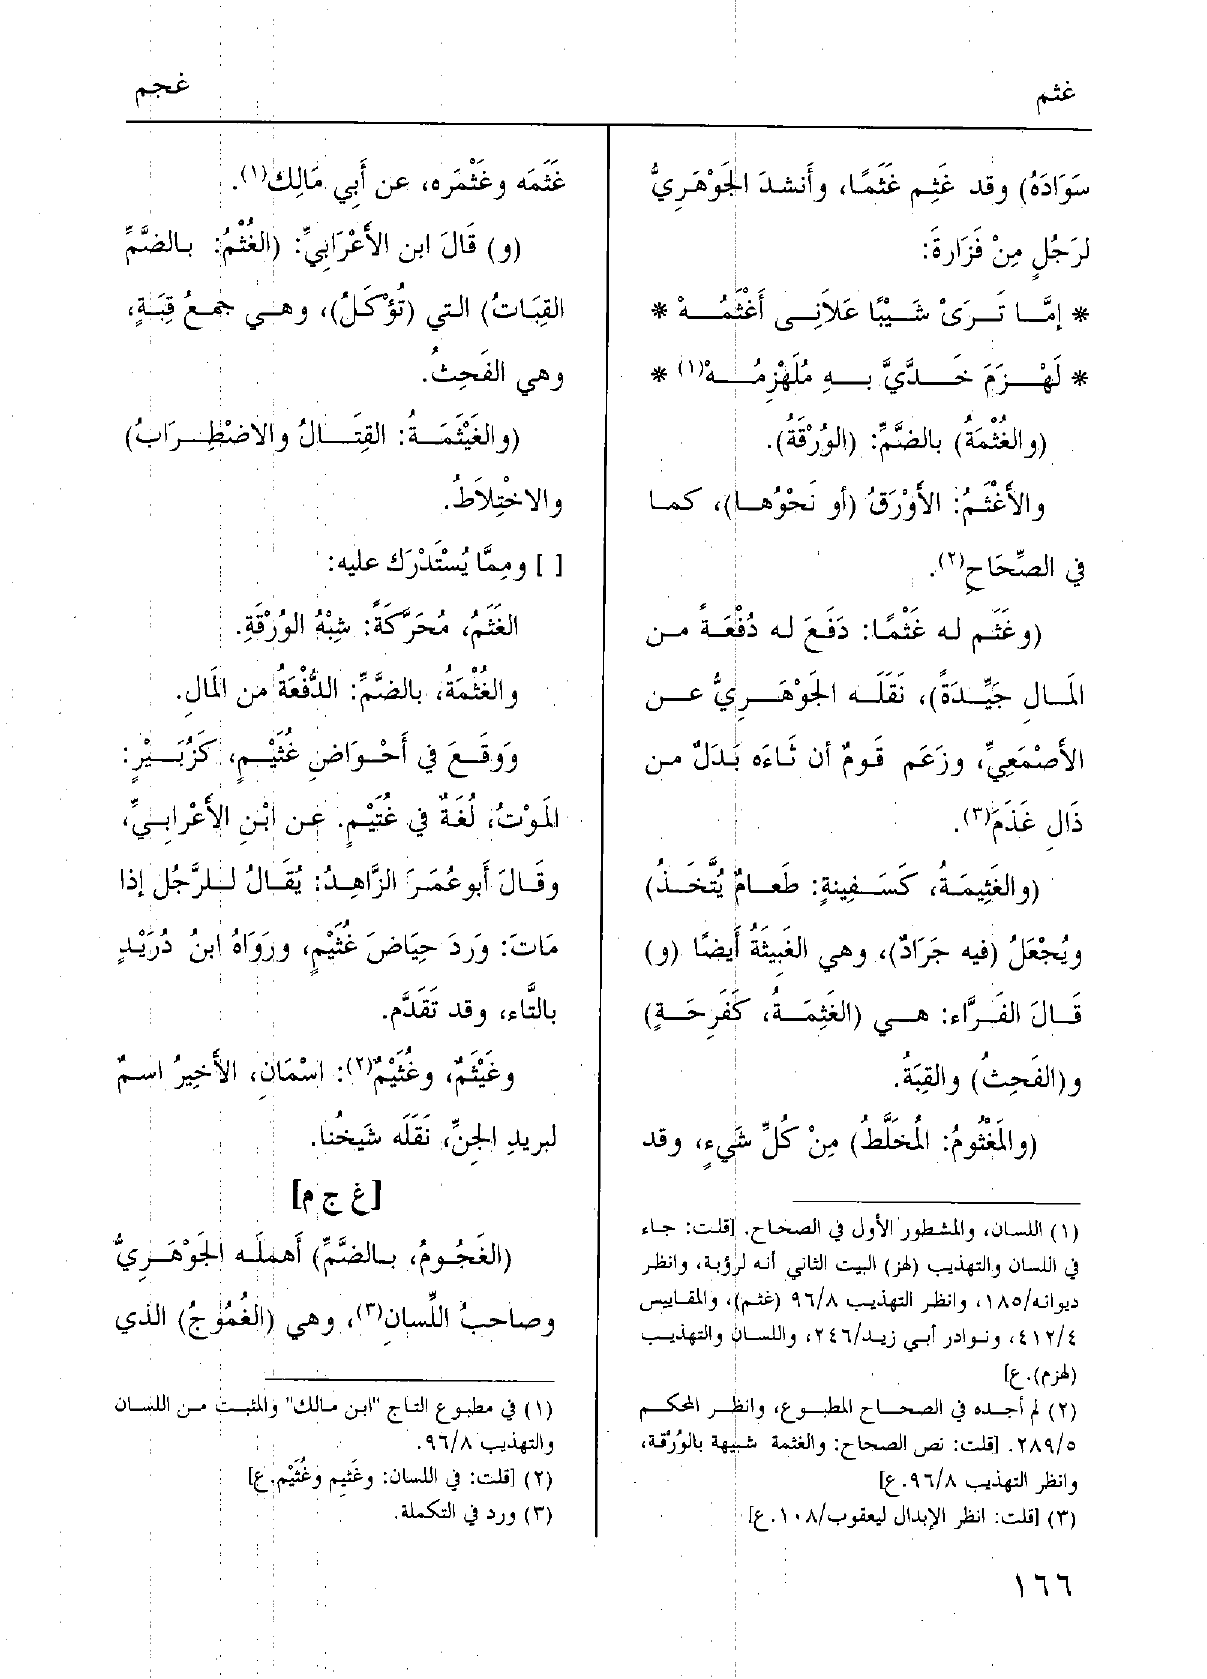 غثم
غجم
سَوَادَهُ) وقد غَثِم غَثَمًا، وأَنشدَ الجَوْهَرِيُّ
لرَجُلٍ مِنْ فَزَارةَ:
* إمَّا تَرَىْ شَيْبًا عَلاَنِى أَغْثَمُهْ *
* لَهْزَمَ خَدَّيَّ بهِ مُلَهْزِمُهْ(١) *
(والغُثْمَةُ) بالضَّمِّ: (الوُرْقَةُ).
والأَغْثَمُ: الأَوْرَقُ (أو نَحْوُها)، كما
في الصِّحَاحِ(٢).
(وغَثَم له غَثْمًا: دَفَعَ له دُفْعَةً من
المَالِ جَيِّدَةً)، نَقَلَه الجَوْهَرِيُّ عن
الأَصْمَعِيِّ، وزَعَم قومٌ أن ثَاءَه بَدَلٌ من
ذَالِ غَذَمَ(٣).
(والغَثِيمَةُ، كَسَفِينةٍ: طَعامٌ يُتَّخَذُ)
ويُجْعَلُ (فيه جَرَادٌ)، وهي الغَبِيثَةُ أَيضًا (و)
قَالَ الفَرَّاء: هي (الغَثِمَةُ، كَفَرِحَةٍ)
و(الفَحِثُ) والقِبَةُ.
(والمَغْثُومُ: المُخَلَّطُ) مِنْ كُلِّ شَيءٍ، وقد
(١) اللسان، والمشطور الأول في الصحاح. [قلت: جاء
في اللسان والتهذيب (لهز) البيت الثاني أنه لرؤبة، وانظر
ديوانه/١٨٥، وانظر التهذيب ٩٦/٨ (غثم)، والمقاييس
٤١٢/٤، ونوادر أبي زيد/٢٤٦، واللسان والتهذيب
(لهزم).ع]
(٢) لم أجده في الصحاح المطبوع، وانظر المحكم
٢٨٩/٥. [قلت: نص الصحاح: والغثمة شبيهة بالوُرْقة،
وانظر التهذيب ٩٦/٨.ع]
(٣) [قلت: انظر الإبدال ليعقوب/١٠٨.ع]
غَثَمَه وغَثْمَره، عن أَبِي مَالِك(١).
(و) قَالَ ابن الأَعْرَابِيِّ: (الغُثْمُ: بالضَّمِّ
القِبَاتُ) التي (تُؤْكَلُ)، وهي جَمعُ قِبَةٍ،
وهي الفَحِثُ.
(والغَيْثَمَةُ: القِتَالُ والاضْطِرَابُ)
والاخْتِلاَطُ.
[ ] وممَّا يُسْتَدْرَك عليه:
الغَثَمُ، مُحَرَّكَةً: شِبْهُ الوُرْقَةِ.
والغُثْمَةُ، بالضَّمِّ: الدُّفْعَةُ من المَالِ.
وَوَقَعَ في أَحْوَاضِ غُثَيْمٍ، كَزُبَيْرٍ:
المَوْتُ، لُغَةٌ في غُتَيْمٍ. عن ابْنِ الأَعْرابيِّ،
وقَالَ أبوعُمَرَ الزَّاهِدُ: يُقَالُ للرَّجُل إذا
مَاتَ: وَرَدَ حِيَاضَ غُثَيْمٍ، ورَوَاهُ ابنُ دُرَيْدٍ
بالتَّاء، وقد تَقَدَّم.
وغَيْثَمٌ، وغُثَيْمٌ(٢): اسْمَانِ، الأَخِيرُ اسمٌ
لبريدِ الجِنِّ، نَقَلَه شَيخُنا.
[غ ج م]
(الغَجُومُ، بالضَّمِّ) أَهملَه الجَوْهَرِيُّ
وصاحبُ اللِّسانِ(٣)، وهي (الغُمُوجُ) الذي
(١) في مطبوع التاج "ابن مالك" والمثبت من اللسان
والتهذيب ٩٦/٨.
(٢) [قلت: في اللسان: وغَثِيم وغُثَيْم.ع]
(٣) ورد في التكملة.
١٦٦